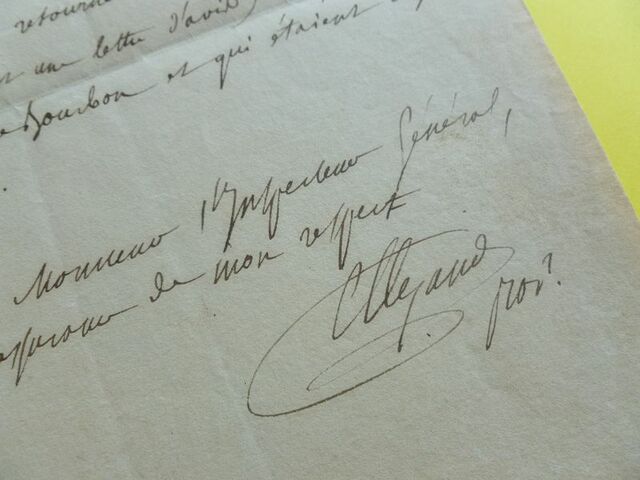 retourne
une lettre d'avis
Bourbon et qui étaient
Monsieur l'Inspecteur Général,
de mon respect
Allegaud